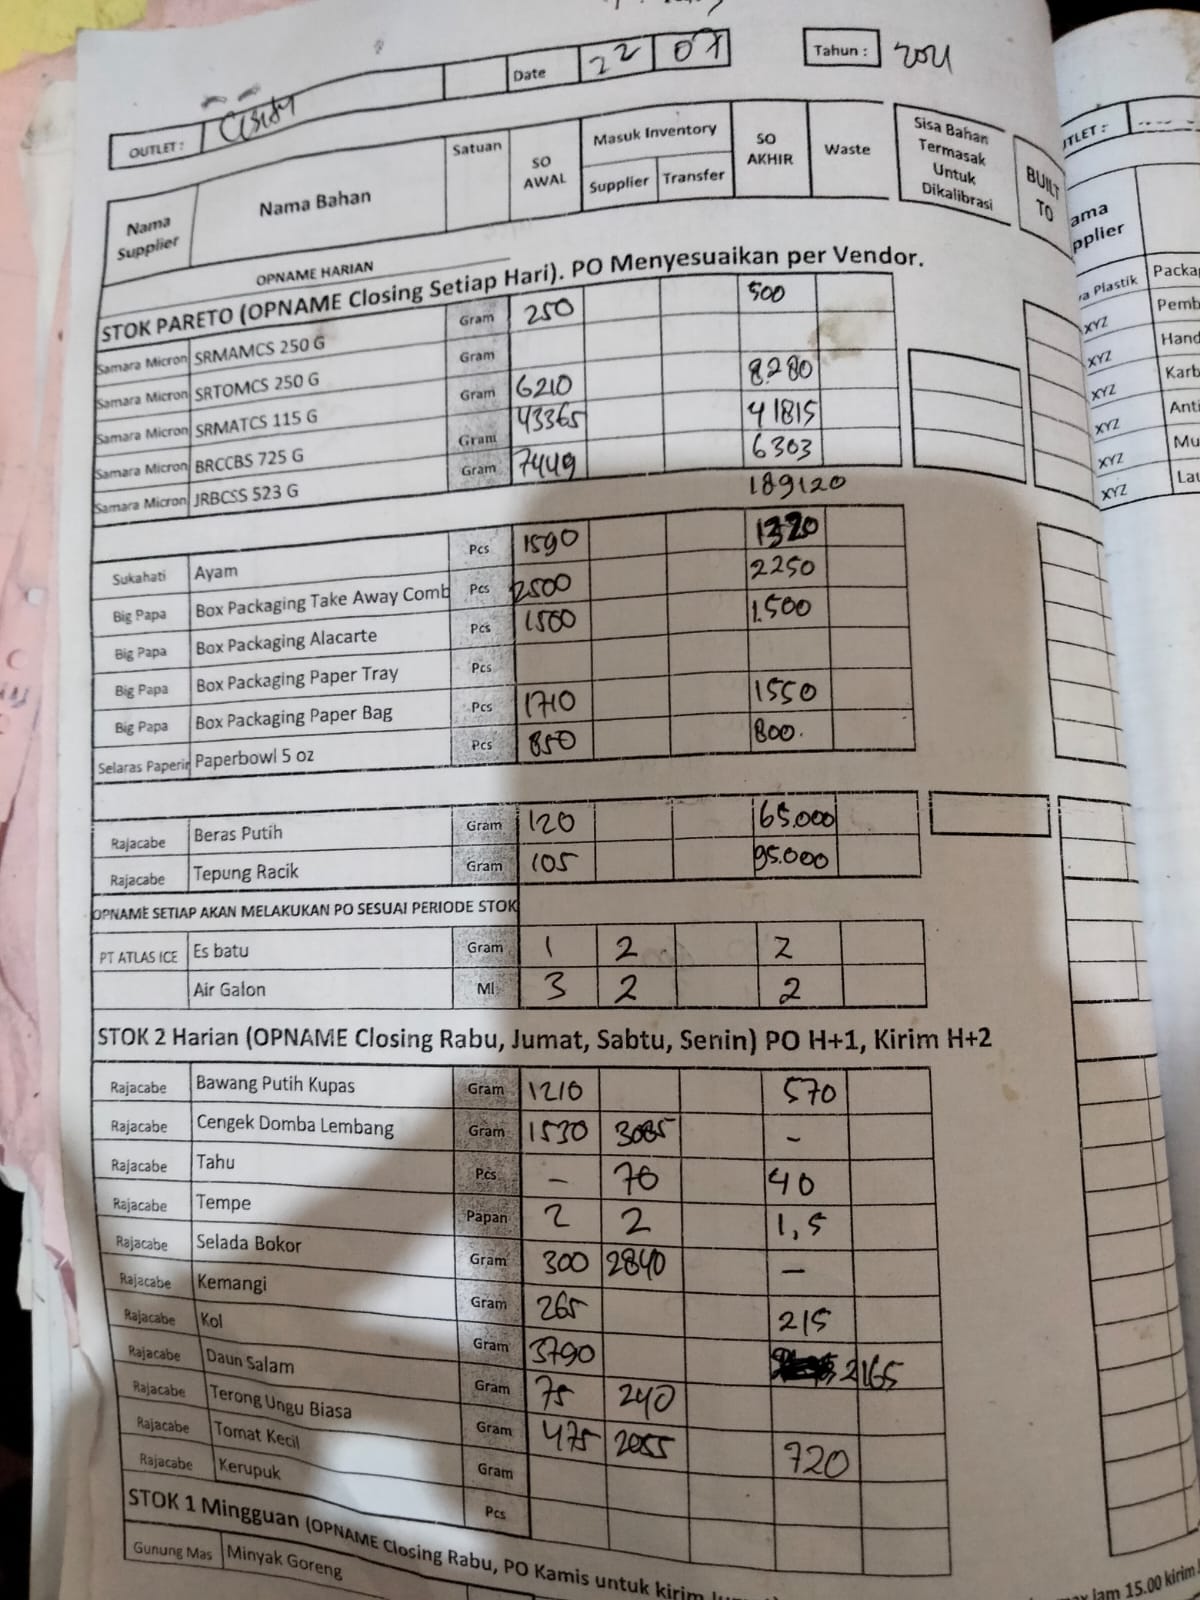 Date 22 07 Tahun : 2021
OUTLET :
Nama Supplier Nama Bahan Satuan SO AWAL Masuk Inventory Supplier Transfer SO AKHIR Waste Sisa Bahan Termasak Untuk Dikalibrasi BUILT TO
OPNAME HARIAN
STOK PARETO (OPNAME Closing Setiap Hari). PO Menyesuaikan per Vendor.
Samara Micron SRMAMCS 250 G Gram 250 500
Samara Micron SRTOMCS 250 G Gram
Samara Micron SRMATCS 115 G Gram 6210 8280
Samara Micron BRCCBS 725 G Gram 43365 41815
Samara Micron JRBCSS 523 G Gram 7449 6303
189120
Sukahati Ayam Pcs 1590 1320
Big Papa Box Packaging Take Away Comb Pcs 2500 2250
Big Papa Box Packaging Alacarte Pcs 1500 1.500
Big Papa Box Packaging Paper Tray Pcs
Big Papa Box Packaging Paper Bag Pcs 1710 1550
Selaras Paperin Paperbowl 5 oz Pcs 850 800.
Rajacabe Beras Putih Gram 120 65.000
Rajacabe Tepung Racik Gram 105 95.000
OPNAME SETIAP AKAN MELAKUKAN PO SESUAI PERIODE STOK
PT ATLAS ICE Es batu Gram 1 2 2
Air Galon Ml 3 2 2
STOK 2 Harian (OPNAME Closing Rabu, Jumat, Sabtu, Senin) PO H+1, Kirim H+2
Rajacabe Bawang Putih Kupas Gram 1210 570
Rajacabe Cengek Domba Lembang Gram 1530 3085 -
Rajacabe Tahu Pcs - 70 40
Rajacabe Tempe Papan 2 2 1,5
Rajacabe Selada Bokor Gram 300 2840 -
Rajacabe Kemangi Gram 265 215
Rajacabe Kol Gram 3790 2165
Rajacabe Daun Salam Gram 75 240
Rajacabe Terong Ungu Biasa Gram 475 2055 720
Rajacabe Tomat Kecil Gram
Rajacabe Kerupuk Pcs
STOK 1 Mingguan (OPNAME Closing Rabu, PO Kamis untuk kirim
jam 15.00 kirim
Gunung Mas Minyak Goreng
UTLET :
ama
pplier
a Plastik Packa
XYZ Pemb
XYZ Hand
XYZ Karb
XYZ Anti
XYZ Mu
XYZ Lau